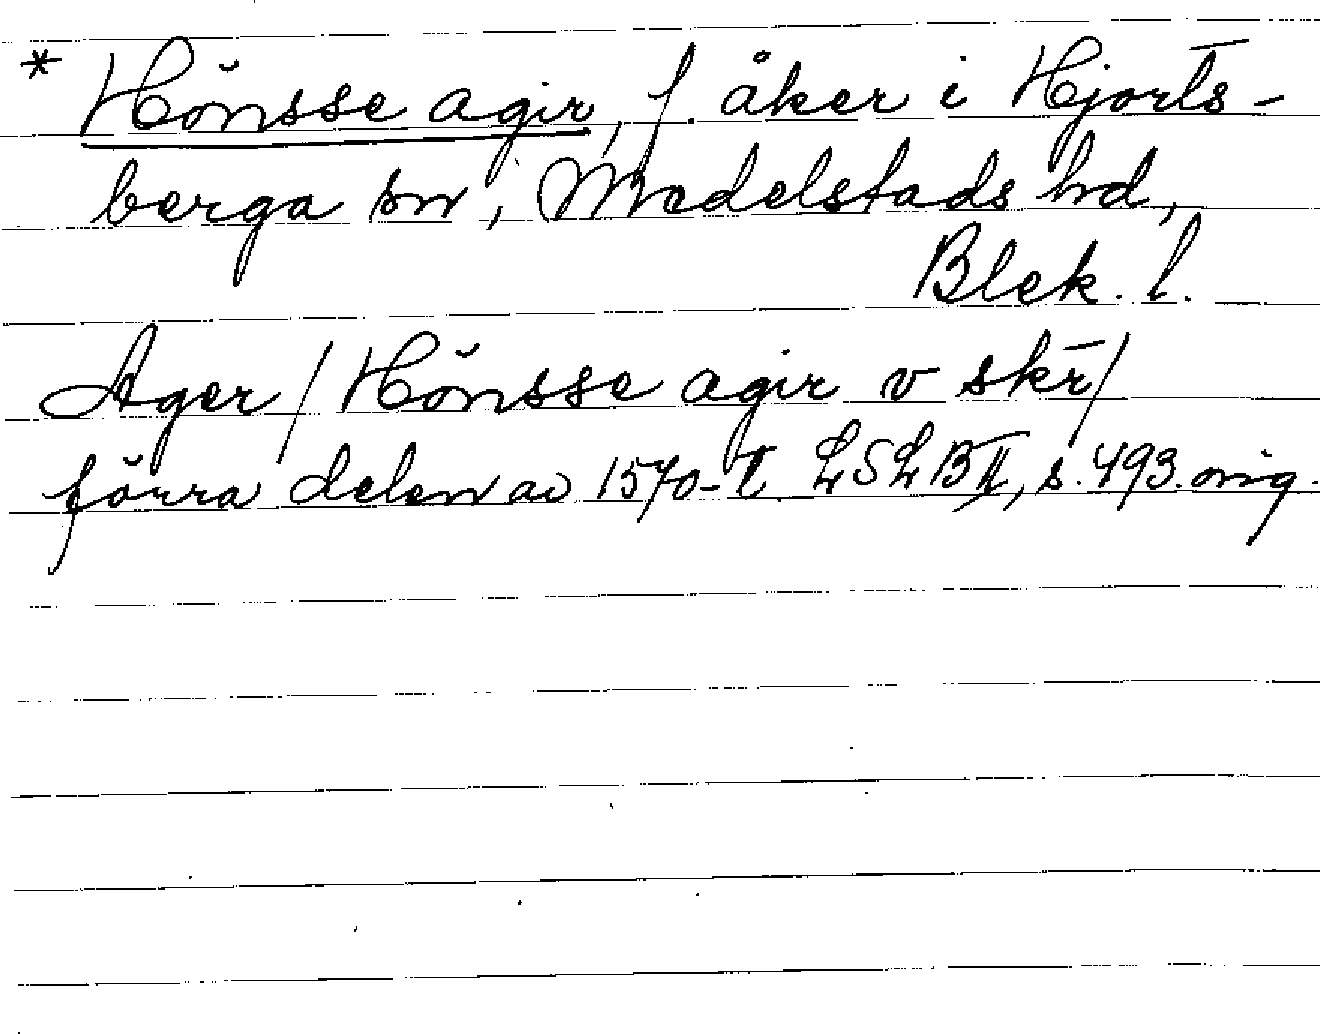 * Hönsse agir, f. åker i Hjorts-
berga sn, Medelstads hd,
Blek. l.
Ager / Hönsse agir v skr /
förra delen av 1570-t. LSLB II, s. 493. orig.